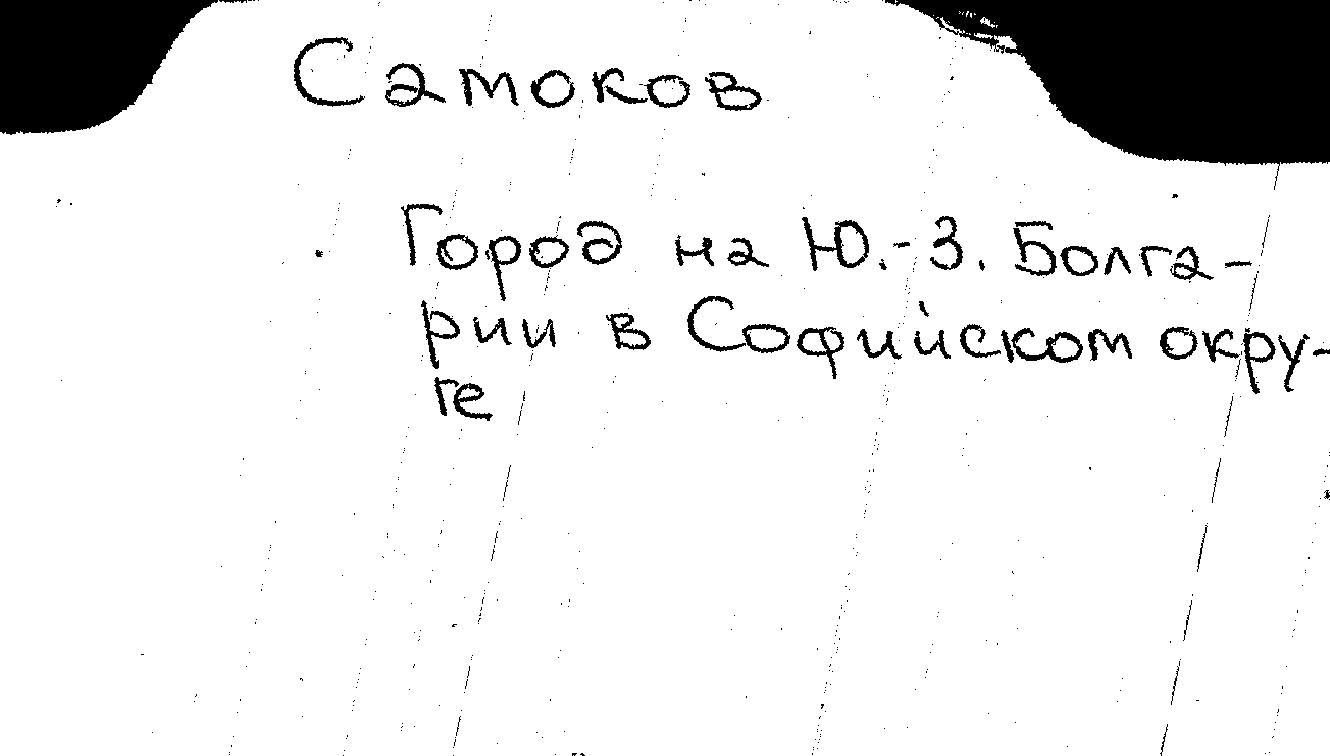 Самоков
Город на Ю.-З. Болга-
рии в Софийском окру-
ге